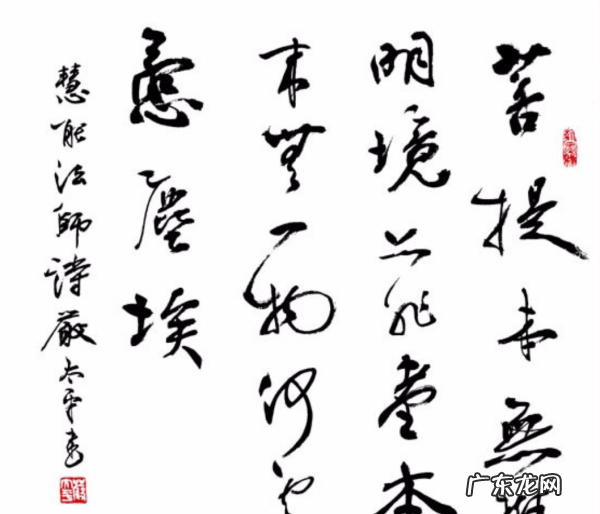 菩提本無
明境亦非臺本
来無一物何
惹塵埃
慧能法師詩嚴太平書
广东龙网